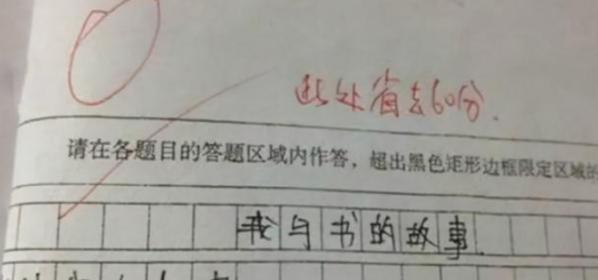 此处省去60分.
请在各题目的答题区域内作答，超出黑色矩形边框限定区域的
我与书的故事